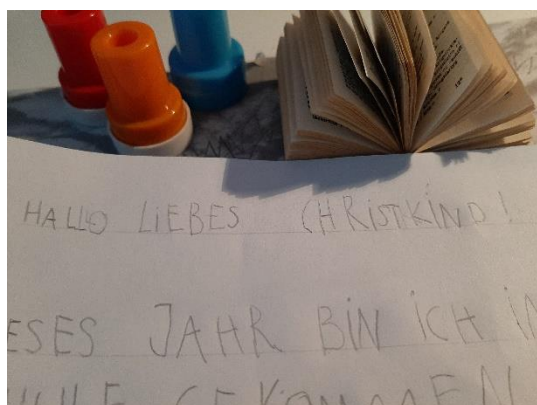 HALLO LIEBES CHRISTKIND!
ESES JAHR BIN ICH IN
HULE GEKOMMEN